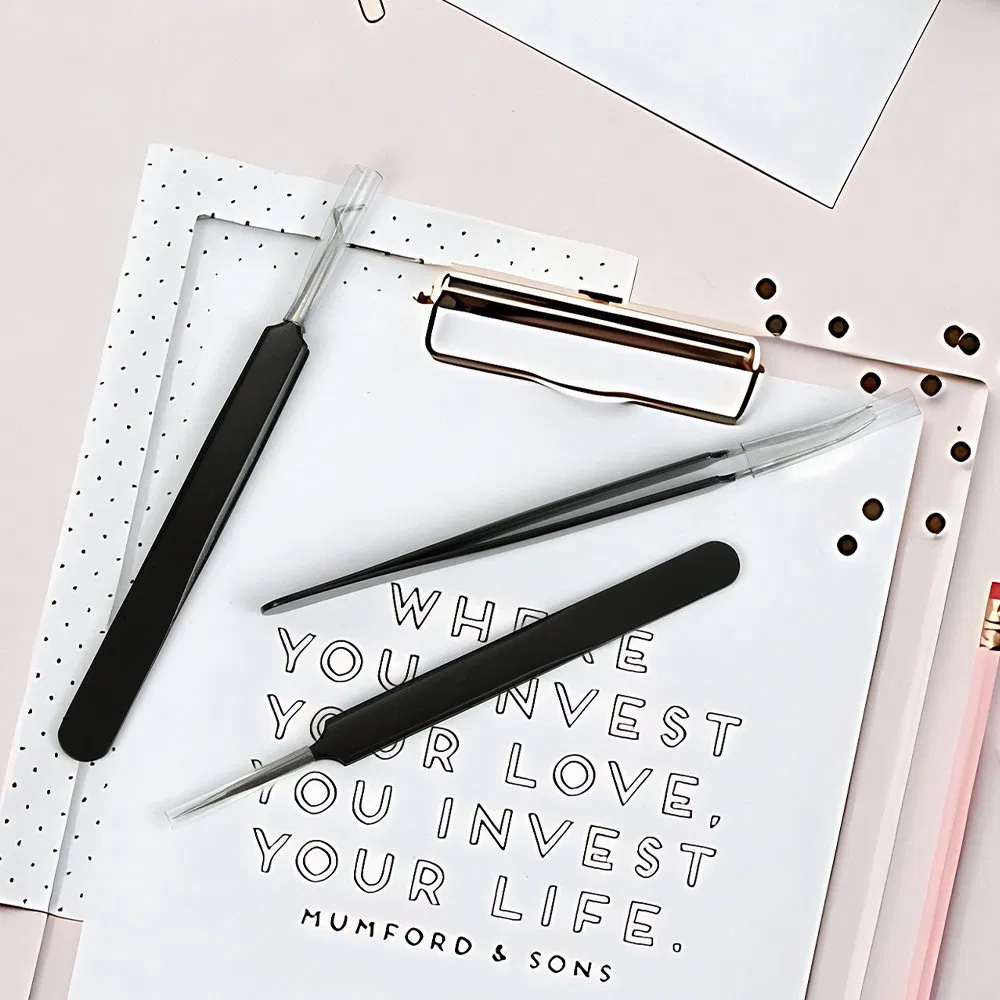 WHERE
YOU INVEST
YOUR LOVE,
YOU INVEST
YOUR LIFE.
MUMFORD & SONS